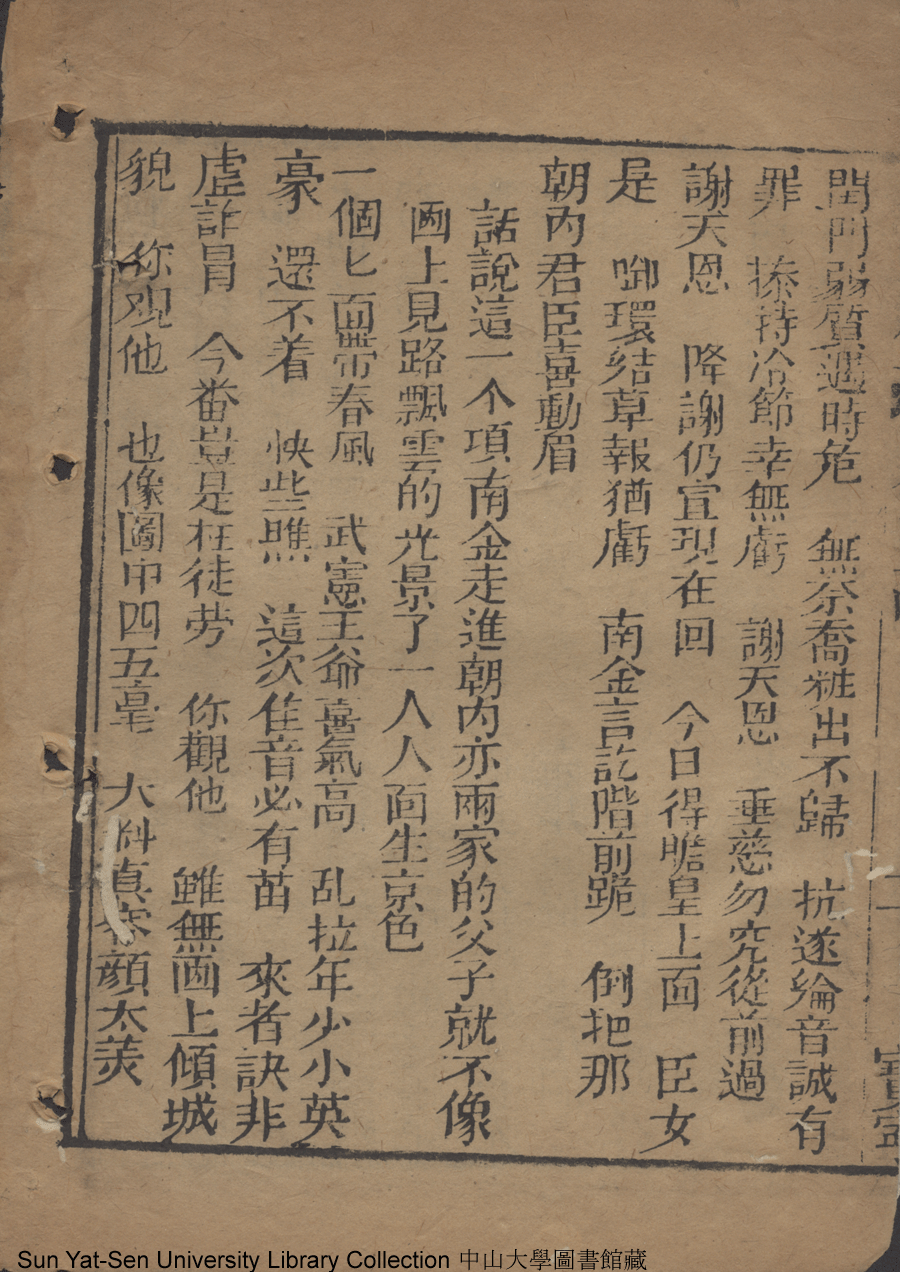 閨門弱質遇時危 無奈喬粧出不歸 抗逆綸音誠有
罪 捺持冷節幸無虧 謝天恩 垂慈勿究從前過
謝天恩 降謝仍宣現在回 今日得瞻皇上面 臣女
是 啣環結草報猶虧 南金言訖階前跪 倒把那
朝内君臣喜動眉
話說這一个項南金走進朝内亦兩家的父子就不像
画上見路飄雲的光景了一人人面生京色
一個匕面帶春風 武憲王爺喜氣高 乱拉年少小英
豪 還不着 快些瞧 這次佳音必有苗 來者訣非
虚詐冒 今番豈是枉徒劳 你觀他 雖無画上傾城
貌 你观他 也像圖中四五毫 大料真容顔太羙
Sun Yat-Sen University Library Collection 中山大學圖書館藏